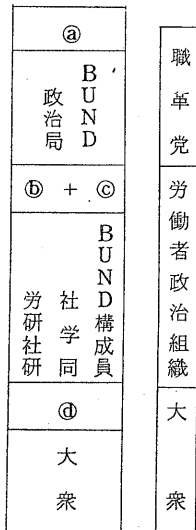 ⓐ
BUND
政治局
ⓑ + ⓒ
BUND構成員
社学同
労研社研
ⓓ
大衆
職革党
労働者政治組織
大衆